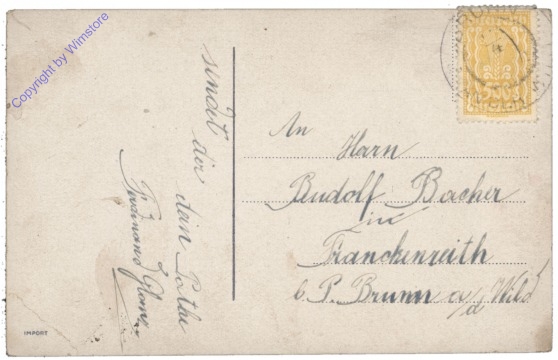 Copyright by Wimstore
sendet dir
dein Pathe
Ferdinand
An
Harn
Rudolf Bacher
in
Franckenreith
b. P. Brunn a/d Wild
500
IMPORT